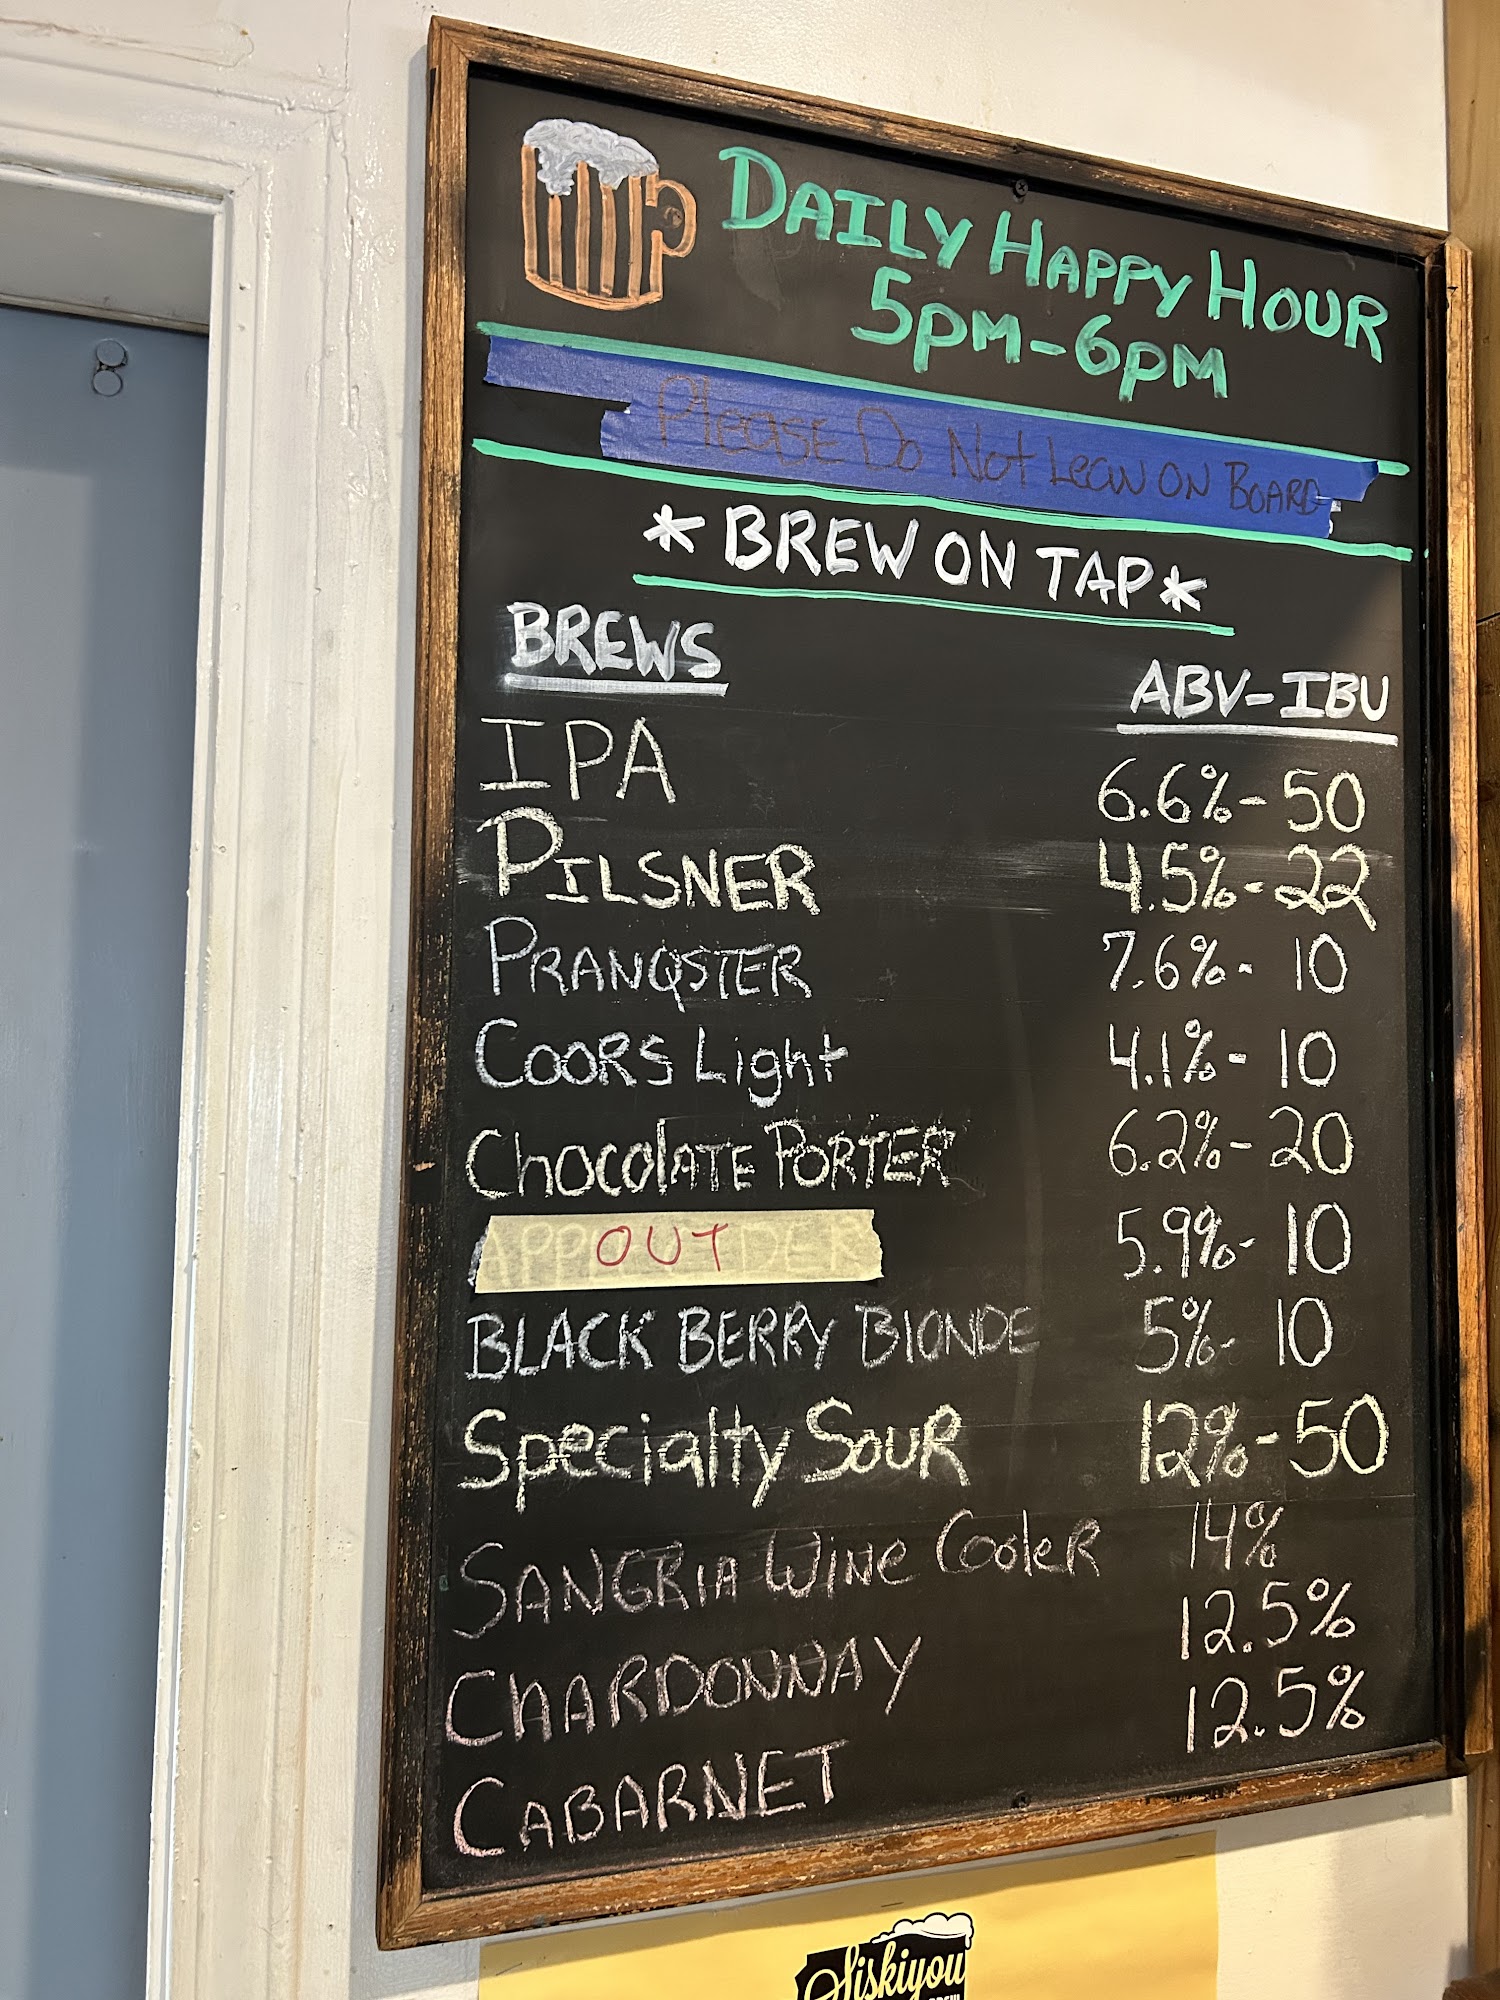 DAILY HAPPY HOUR
5PM-6PM
Please Do Not Lean on Board
*BREW ON TAP*
BREWS ABV-IBU
IPA 6.6%-50
PILSNER 4.5%-22
PRANQSTER 7.6%-10
COORS Light 4.1%-10
Chocolate PORTER 6.2%-20
OUT 5.9%-10
BLACK BERRY BLONDE 5%-10
Specialty SOUR 12%-50
SANGRIA WINE COOLER 14%
CHARDONNAY 12.5%
CABARNET 12.5%
Siskiyou